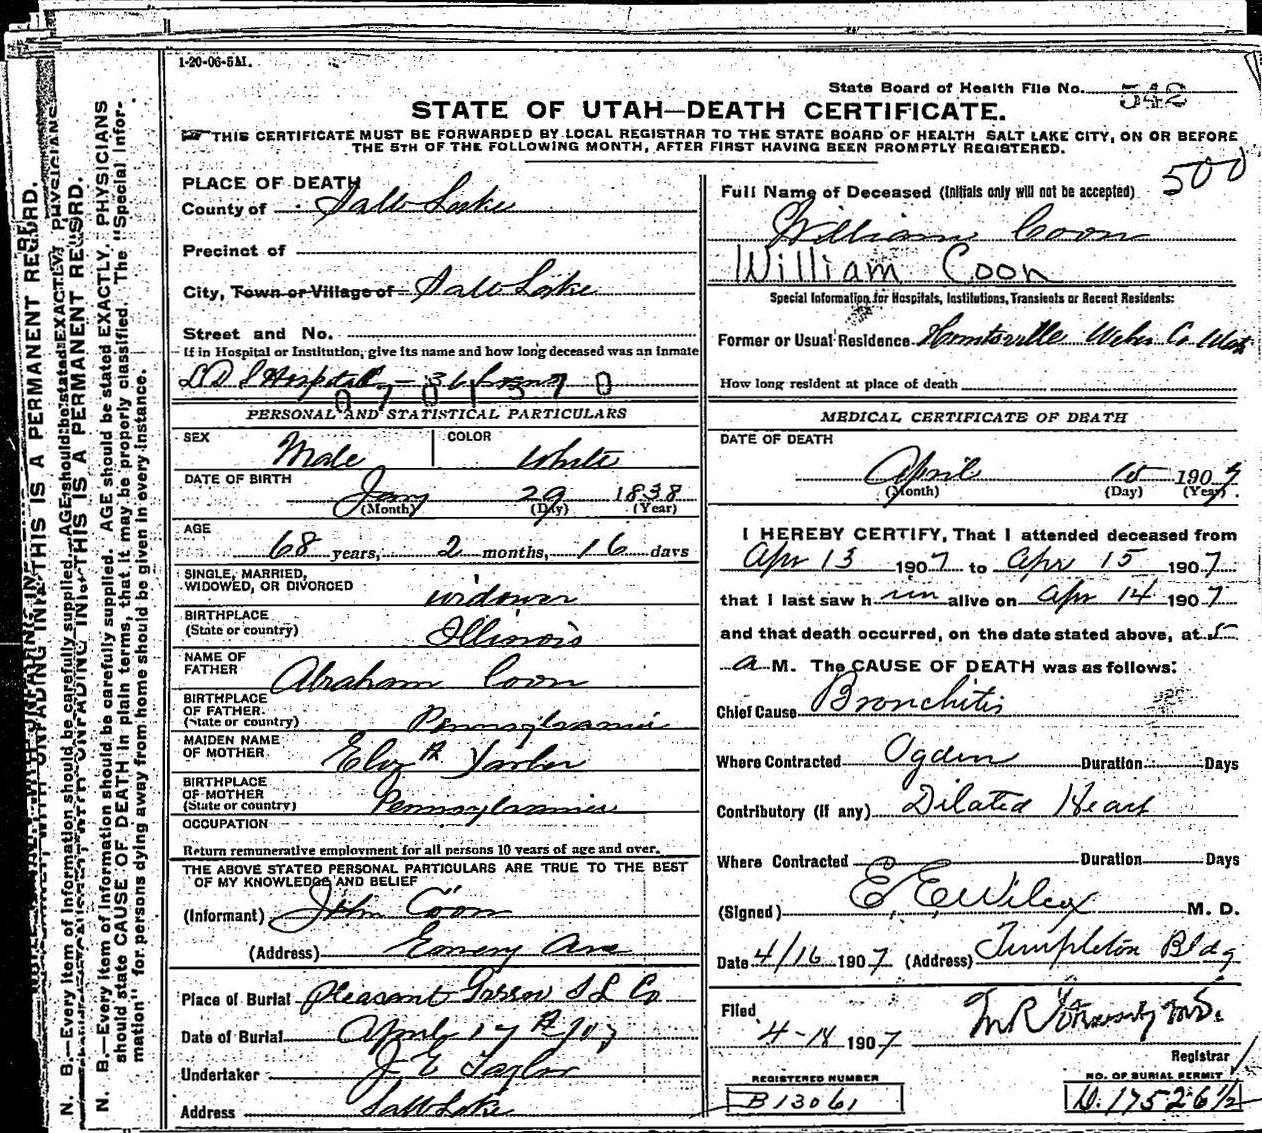 1-20-06-5M.
State Board of Health File No. 542
STATE OF UTAH—DEATH CERTIFICATE.
THIS CERTIFICATE MUST BE FORWARDED BY LOCAL REGISTRAR TO THE STATE BOARD OF HEALTH SALT LAKE CITY, ON OR BEFORE
THE 5TH OF THE FOLLOWING MONTH, AFTER FIRST HAVING BEEN PROMPTLY REGISTERED.
500
PLACE OF DEATH
County of Salt Lake
Precinct of
City, Town or Village of Salt Lake
Street and No.
If in Hospital or Institution, give its name and how long deceased was an inmate
L D S Hospital - 36 hours
0 7 0 1 3 7 0
PERSONAL AND STATISTICAL PARTICULARS
SEX Male COLOR White
DATE OF BIRTH
Jany 29 1838
(Month) (Day) (Year)
AGE
68 years, 2 months, 16 days
SINGLE, MARRIED,
WIDOWED, OR DIVORCED widower
BIRTHPLACE
(State or country) Illinois
NAME OF
FATHER Abraham Coon
BIRTHPLACE
OF FATHER
(State or country) Pennsylvania
MAIDEN NAME
OF MOTHER
BIRTHPLACE
OF MOTHER
(State or country) Pennsylvania
OCCUPATION
Return remunerative employment for all persons 10 years of age and over.
THE ABOVE STATED PERSONAL PARTICULARS ARE TRUE TO THE BEST
OF MY KNOWLEDGE AND BELIEF
(Informant) John Coon
(Address) Emery Ave
Place of Burial Pleasant Green S L Co
Date of Burial April 17th 1907
Undertaker J E Taylor
Address Salt Lake
Full Name of Deceased (Initials only will not be accepted)
William Coon
William Coon
Special Information for Hospitals, Institutions, Transients or Recent Residents:
Former or Usual Residence Huntsville Weber Co Utah
How long resident at place of death
MEDICAL CERTIFICATE OF DEATH
DATE OF DEATH
April 15 1907
(Month) (Day) (Year)
I HEREBY CERTIFY, That I attended deceased from
Apr 13 1907 to Apr 15 1907
that I last saw him alive on Apr 14 1907
and that death occurred, on the date stated above, at 5
a M. The CAUSE OF DEATH was as follows:
Chief Cause Bronchitis
Where Contracted Ogden Duration Days
Contributory (if any) Dilated Heart
Where Contracted Duration Days
(Signed) E. E. Wilcox M. D.
Date 4/16 1907 (Address) Templeton Bldg
Filed
4-18 1907
Registrar
REGISTERED NUMBER
B 13061
NO. OF BURIAL PERMIT
D. 17526 1/2
N. B.—Every item of information should be carefully supplied. AGE should be stated EXACTLY. PHYSICIANS
should state CAUSE OF DEATH in plain terms, that it may be properly classified. The "Special Infor-
mation" for persons dying away from home should be given in every instance.